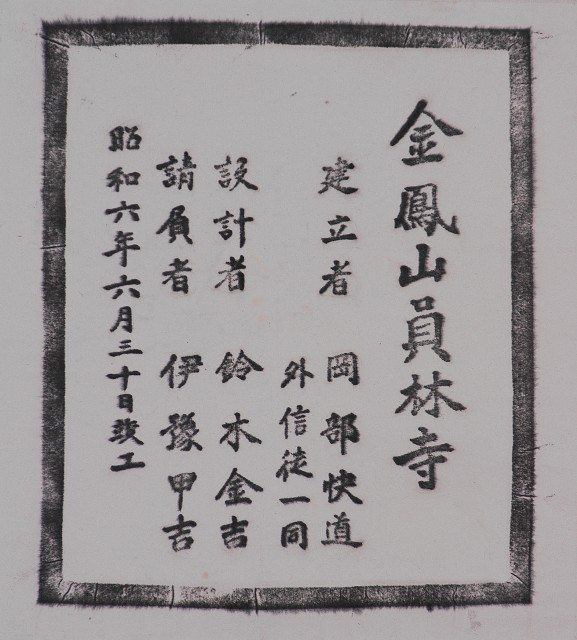 金鳳山員林寺
建立者 岡部快道
外信徒一同
設計者 鈴木金吉
請負者 伊豫甲吉
昭和六年六月三十日竣工